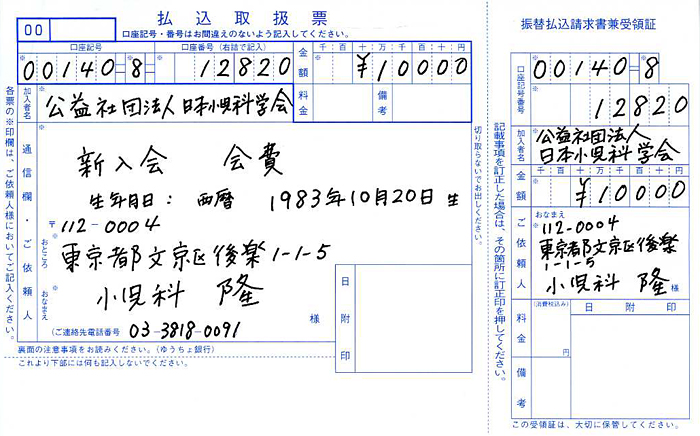 払込取扱票
00
口座記号・番号はお間違えのないよう記入してください。
口座記号 口座番号(右詰で記入) 金額 千 百 十 万 千 百 十 円
00140-8- 12820 ¥10000
加入者名 公益社団法人日本小児科学会 料金 備考
各票の※印欄は、ご依頼人様においてご記入ください。
通信欄・ご依頼人
新入会 会費
生年月日: 西暦 1983年10月20日 生
〒112-0004
おところ 東京都文京区後楽1-1-5
おなまえ 小児科 隆 様
(ご連絡先電話番号 03-3818-0091
日附印
裏面の注意事項をお読みください。(ゆうちょ銀行)
これより下部には何も記入しないでください。
切り取らないでお出しください。
記載事項を訂正した場合は、その箇所に訂正印を押してください。
振替払込請求書兼受領証
口座記号番号 00140-8
12820
加入者名 公益社団法人
日本小児科学会
金額 千 百 十 万 千 百 十 円
¥10000
ご依頼人 おなまえ
112-0004
東京都文京区後楽
1-1-5
小児科 隆 様
(消費税込み) 日附印
料金 円
備考
この受領証は、大切に保管してください。